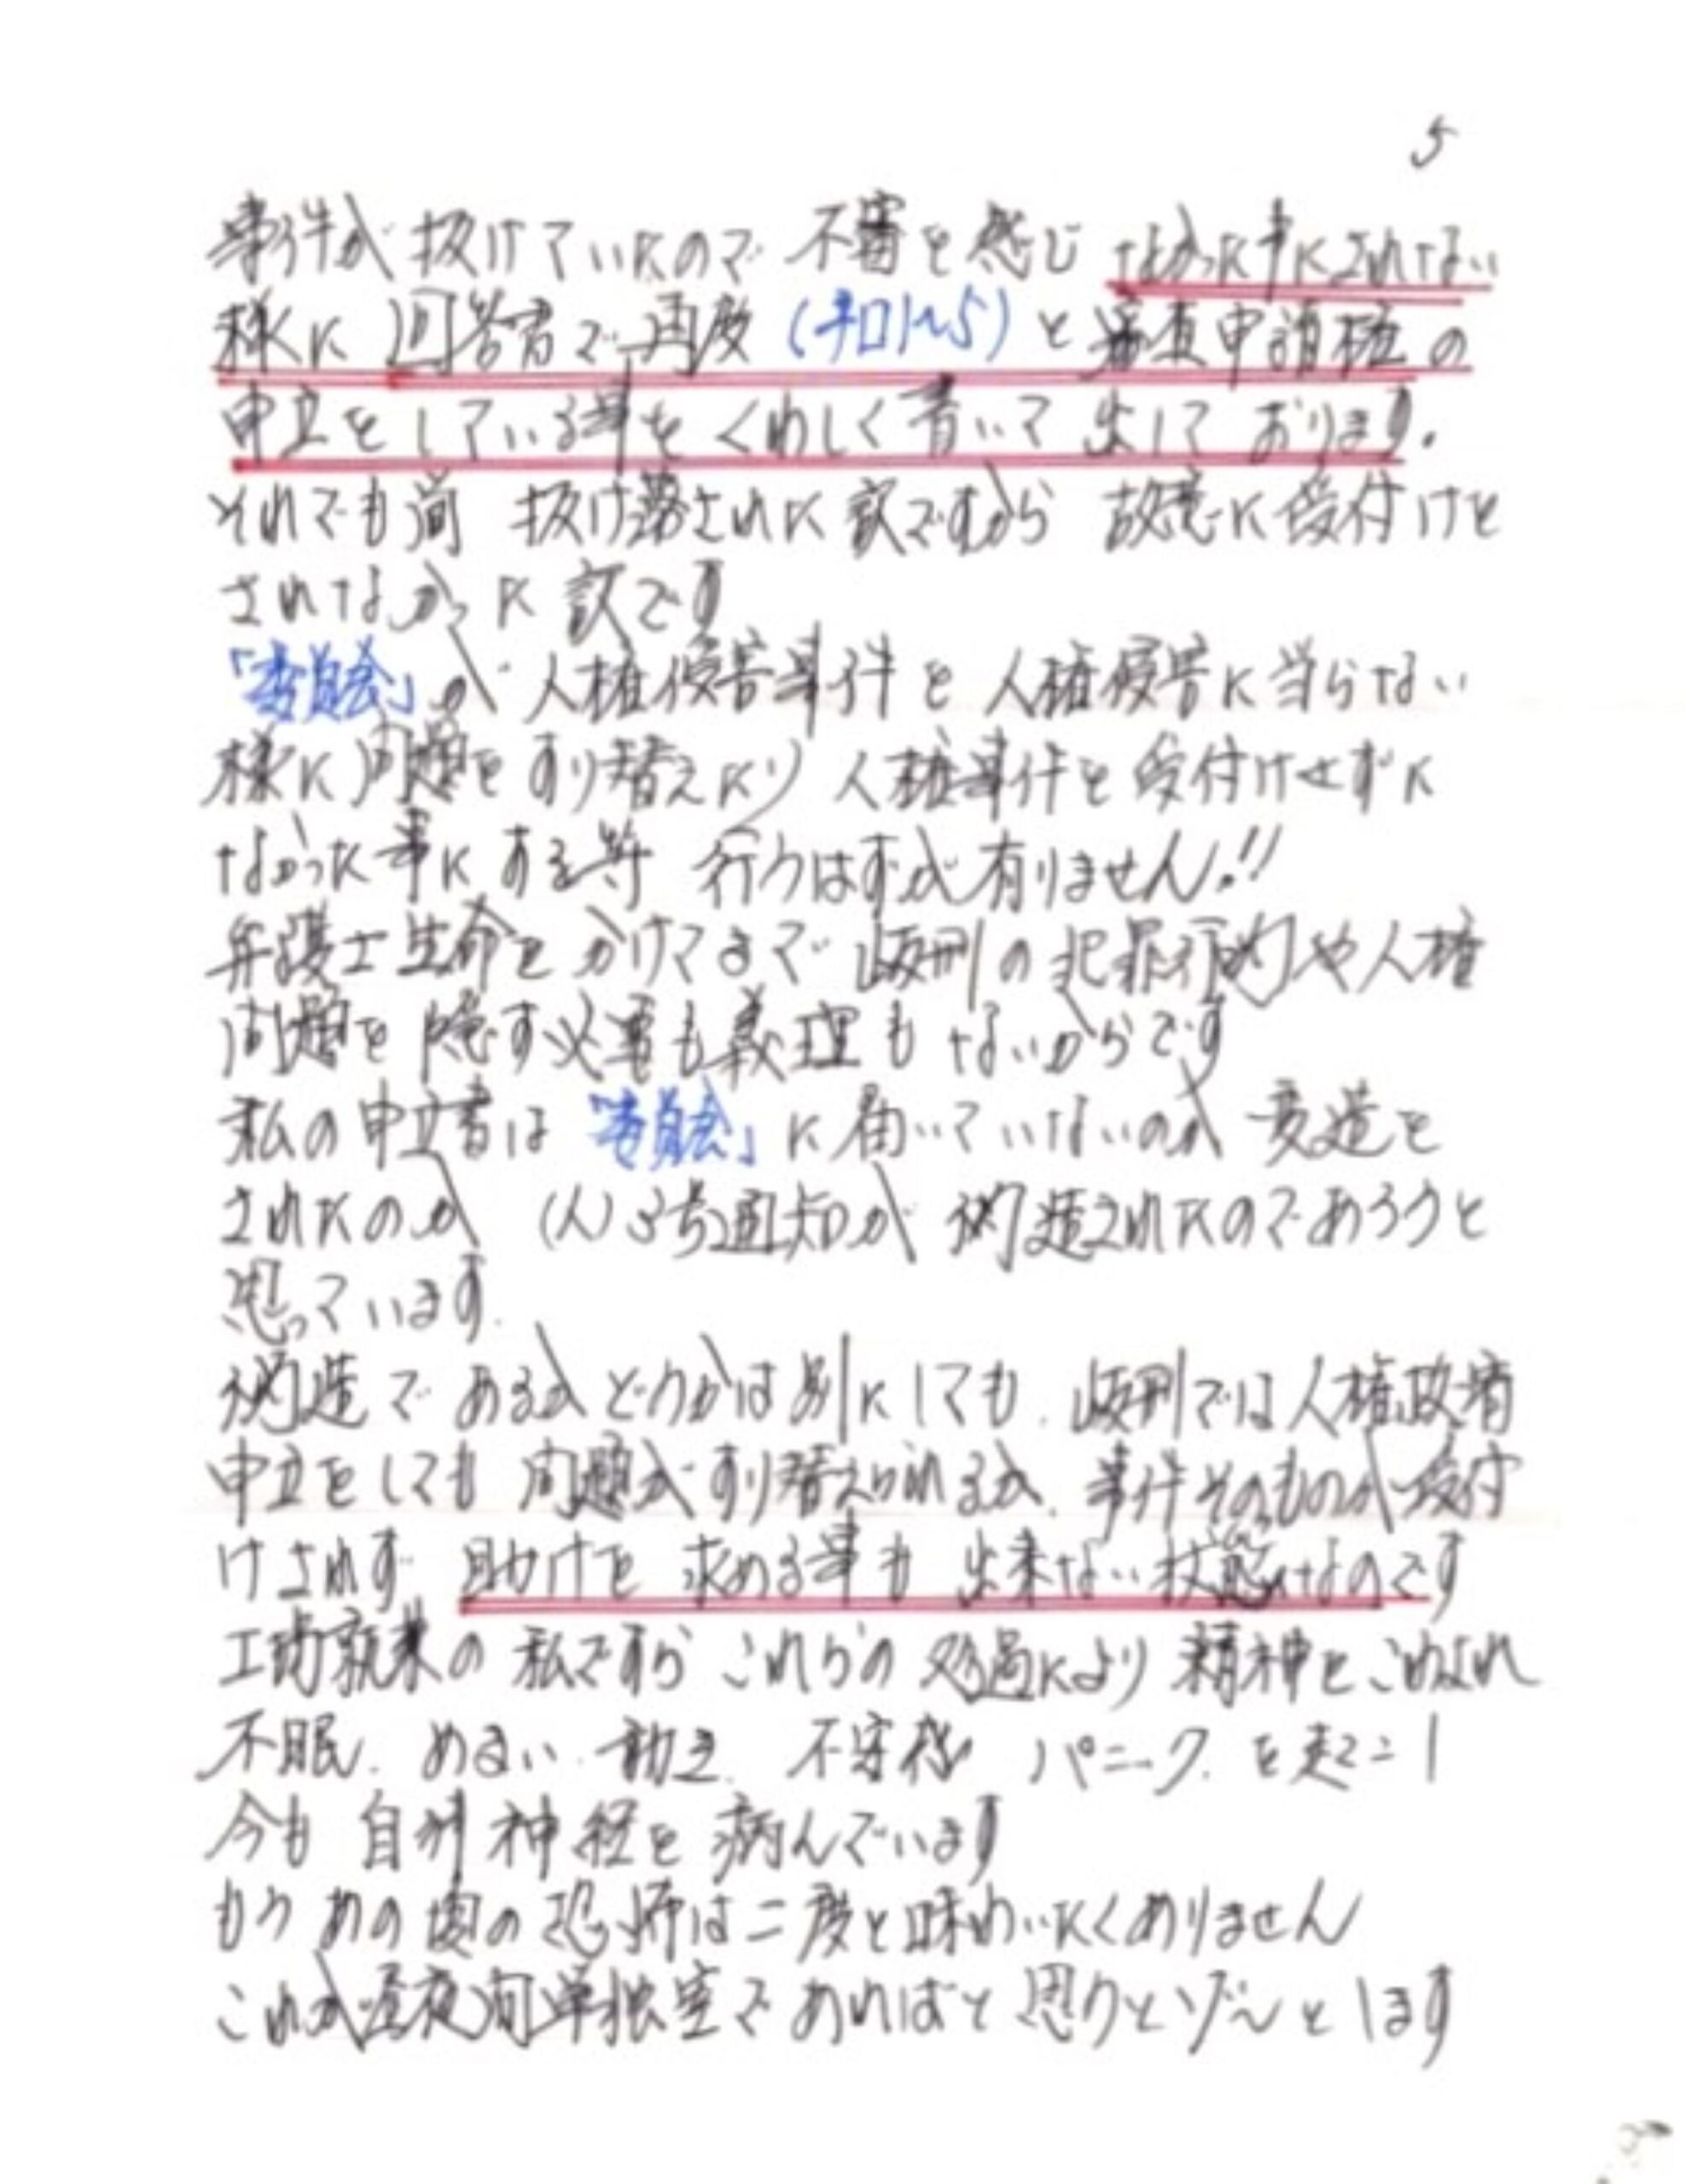 5
事件が抜けていたので 不審を感じ なかった事にされない
様に 回答書で再度 (チロ1~5) と審査申請権の
申立をしている事を くわしく書いて 出して おります。
それでも尚 抜け落された訳ですから 故意に受付けを
されなかった訳です
「委員会」が 人権侵害事件を 人権侵害に当らない
様に問題を すり替えたり 人権事件を受付けせずに
なかった事に する等 行うはずが有りません!!
弁護士生命を かけてまで 岐刑の犯罪行的や人権
問題を 隠す必要も義理も ないからです
私の申立書は 「委員会」に届いていないのか 変造を
されたのか (人)3号通知が 偽造されたのであろうと
思っています.
偽造で あるか どうかは別にしても. 岐刑では人権救済
申立をしても 問題がすり替えられるか. 事件そのものが受付
けされず 助けを 求める事も 出来ない状態なのです
工場就業の 私ですら これらの 処遇により 精神を こわされ
不眠. めまい. 動き. 不安感 パニック. を起こし
今も 自律神経を 病んでいます
もう あの頃の恐怖は二度と味わいたくありません
これが昼夜間単独室で あればと 思うとゾ~ッとします